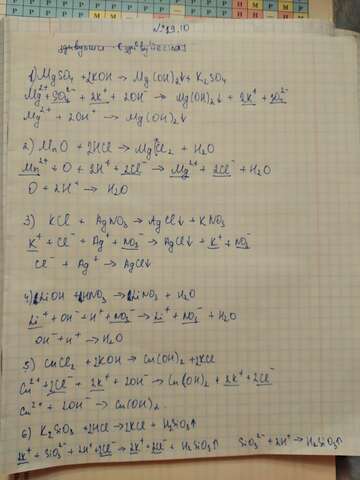 № 19.10
1) MgSO₄ + 2KOH → Mg(OH)₂↓ + K₂SO₄
Mg²⁺ + SO₄²⁻ + 2K⁺ + 2OH⁻ → Mg(OH)₂↓ + 2K⁺ + SO₄²⁻
Mg²⁺ + 2OH⁻ → Mg(OH)₂↓
2) MnO + 2HCl → MgCl₂ + H₂O
Mn²⁺ + O + 2H⁺ + 2Cl⁻ → Mg²⁺ + 2Cl⁻ + H₂O
O + 2H⁺ → H₂O
3) KCl + AgNO₃ → AgCl↓ + KNO₃
K⁺ + Cl⁻ + Ag⁺ + NO₃⁻ → AgCl↓ + K⁺ + NO₃⁻
Cl⁻ + Ag⁺ → AgCl↓
4) LiOH + HNO₃ → LiNO₃ + H₂O
Li⁺ + OH⁻ + H⁺ + NO₃⁻ → Li⁺ + NO₃⁻ + H₂O
OH⁻ + H⁺ → H₂O
5) CuCl₂ + 2KOH → Cu(OH)₂ + 2KCl
Cu²⁺ + 2Cl⁻ + 2K⁺ + 2OH⁻ → Cu(OH)₂ + 2K⁺ + 2Cl⁻
Cu²⁺ + 2OH⁻ → Cu(OH)₂
6) K₂SiO₃ + 2HCl → 2KCl + H₂SiO₃↑
2K⁺ + SiO₃²⁻ + 2H⁺ + 2Cl⁻ → 2K⁺ + 2Cl⁻ + H₂SiO₃↑ SiO₃²⁻ + 2H⁺ → H₂SiO₃↑